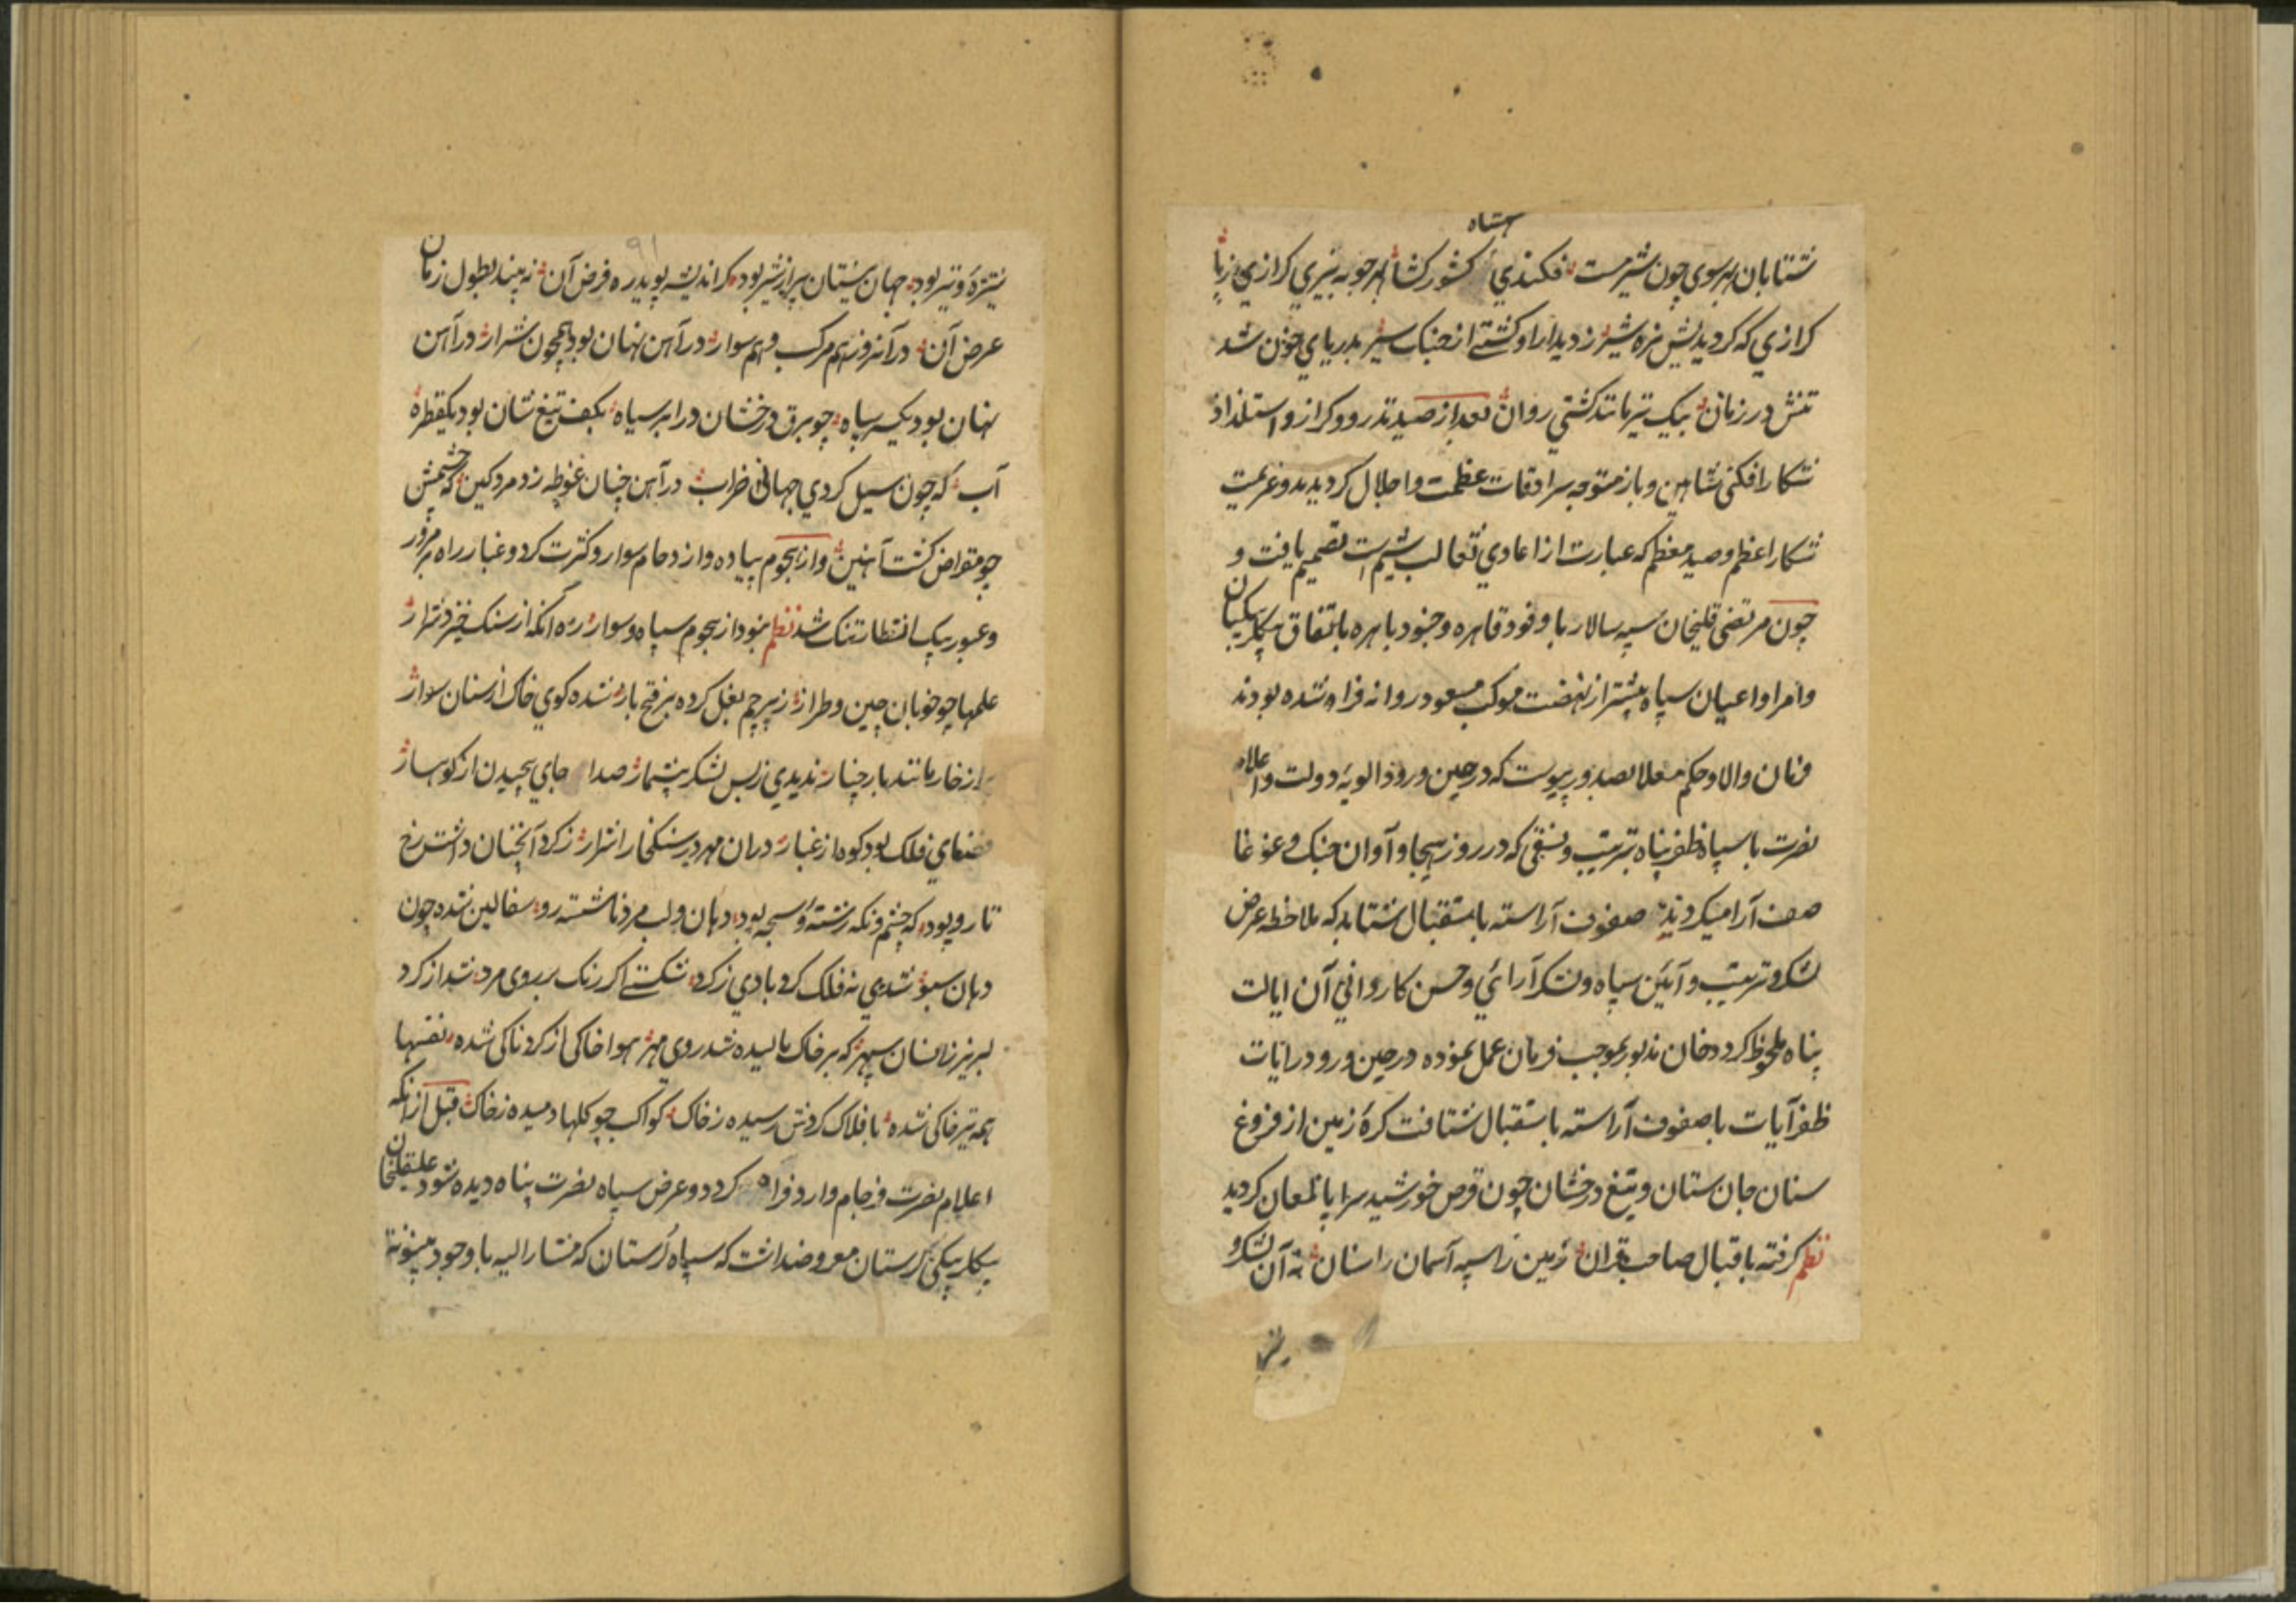 شتابان بهر سوی چون شیر مست فکندی شهنشاه کشور کشا بهر چوبه تیری کرازی ز پا
کرازی که کردیدیش نره شیر ز دیدار او کشتی از جنک سیر بدریای خون شد
تنش در زمان بیک تیر مانند کشتی روان بعد از صید تذرو و کراز و استلذاذ
شکار افکنی شاهین و باز متوجه سرادقات عظمت و اجلال کردیدند و عزیمت
شکار اعظم و صید معظم که عبارت از اعادی ثعالب شیم است تصمیم یافت و
چون مرتضی قلیخان سپه سالار با وفود قاهره و جنود باهره باتفاق بیکلربیکیان
و امرا و اعیان سپاه پیشتر از نهضت موکب مسعود روانه فراه شده بودند
فرمان والا و حکم معلا بصدور پیوست که در حین ورود الویه دولت و اعلام
نصرت با سپاه ظفر پناه بترتیب و نسقی که در روز هیجا و آوان جنک و غوغا
صف آرا میکردند صفوف آراسته باستقبال شتابد که ملاحظه عرض
لشکر و ترتیب و آیین سپاه و لشکر آرائی و حسن کاردانی آن ایالت
پناه ملحوظ کردد خان مذبور بموجب فرمان عمل نموده در حین ورود رایات
ظفر آیات با صفوف آراسته باستقبال شتافت کرهٔ زمین از فروغ
سنان جان ستان و تیغ درخشان چون قرص خورشید سراپا لمعان کردید
نظم کرفته باقبال صاحبقران زمین را سپه آسمان را سنان نه آن لشکر و
نیزه و تیر بود جهان نیستان پر از شیر بود کر اندیشه پوید ره فرض آن نه بیند بطول زمان
عرض آن در آنروز هم مرکب و هم سوار در آهن نهان بود همچون شرار در آهن
نهان بود یکسر سپاه چو برق درخشان در ابر سیاه بکف تیغ شان بود یکقطره
آب که چون سیل کردی جهانی خراب در آهن چنان غوطه زد مرد کین که چشمش
چو مقراض کشت آهنین و از هجوم پیاده و ازدحام سوار و کثرت کرد و غبار راه مرور
و عبور پیک انتظار تنک شد نظم نبود از هجوم سپاه و سوار ره آنکه از سنک خیزد شرار
علمها چو خوبان چین و طراز ز پرچم بغل کرده بر فتح باز شده کوی خاک از سنان سوار
پر از خار مانند بار چنار ندیدی ز بس لشکر بیشمار صدا جای پیچیدن از کوهسار
فضای فلک بود کوه از غبار در ان مهر در سنک خارا شرار ز کرد آنچنان داشت رخ
تار و پود که چشم و نکه رشته و سبحه بود دهان و لب مرد ناشسته رو سفالین شده چون
دهان سبو شدی نه فلک کرد بادی ز کرد شکستی اکر رنک بر روی مرد شد از کرد
لبریز زانسان سپهر که بر خاک مالیده شد روی مهر هوا خاکی از کرد ناکی شده نفسها
همه تیر خاکی شده بافلاک کردش رسیده ز خاک کواکب چو کلها دمیده ز خاک قبل از آنکه
اعلام نصرت فرجام وارد فراه کردد و عرض سپاه نصرت پناه دیده شود علیقلیخان
بیکلربیکی لرستان معروضداشت که سپاه لرستان که مشارالیه با وجود